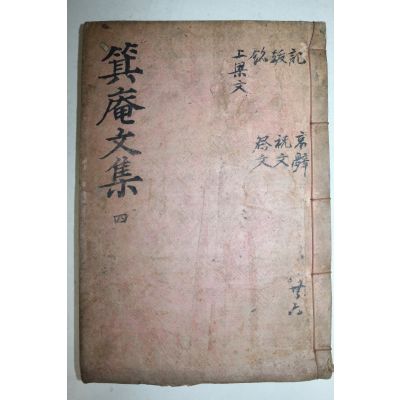 記 跋 銘
上梁文
哀辭
祝文
祭文
共六
箕庵文集
四